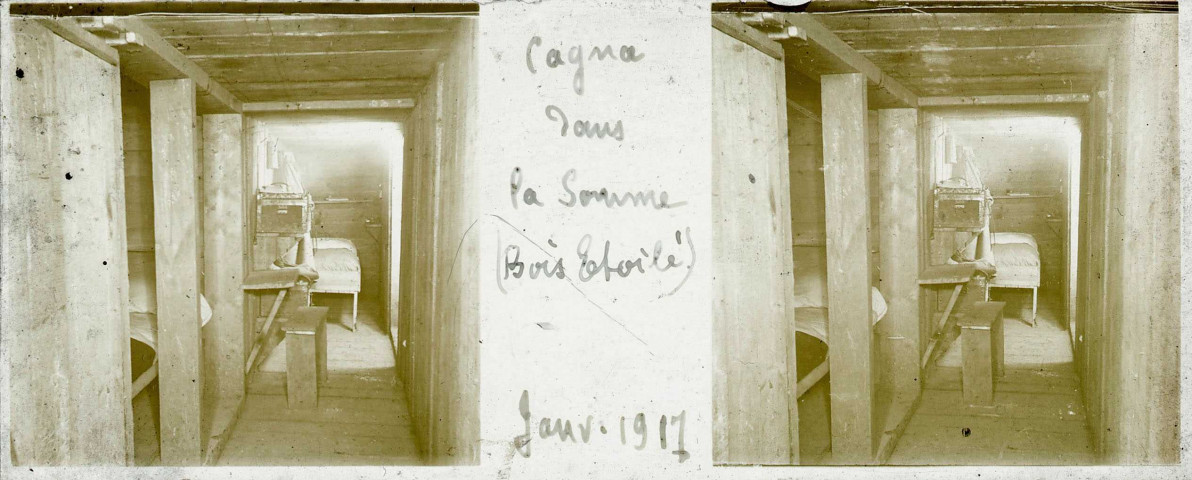 Cagna
dans
la Somme
(Bois Etoilé)
Janv. 1917